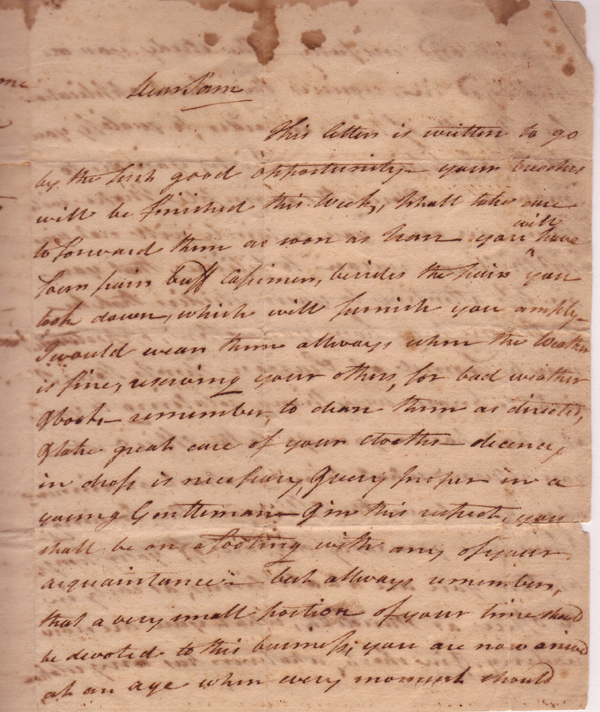 Dear Sam
This letter is written to go
by the first good opportunity yours breeches
will be finished this Week, shall take care
to forward them as soon as I can you will have
four pair buff Casimer, besides the pair you
took down, which will furnish you amply
I would wear them allways when the Weather
is fine, reserving your others, for bad weather
& boots remember, to clean them as directed,
& take great care of your cloaths decency
in dress is necessary, & very proper in a
young Gentleman & in this respect, you
shall be on a footing with any of your
acquaintances but allways remember,
that a very small portion of your time should
be devoted to this business, you are now arrived
at an age when every moment should